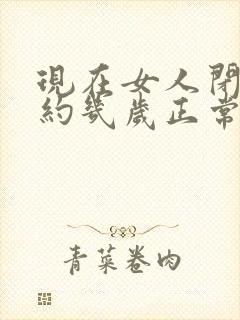 現在女人閉
約幾歲正常
青菜卷肉